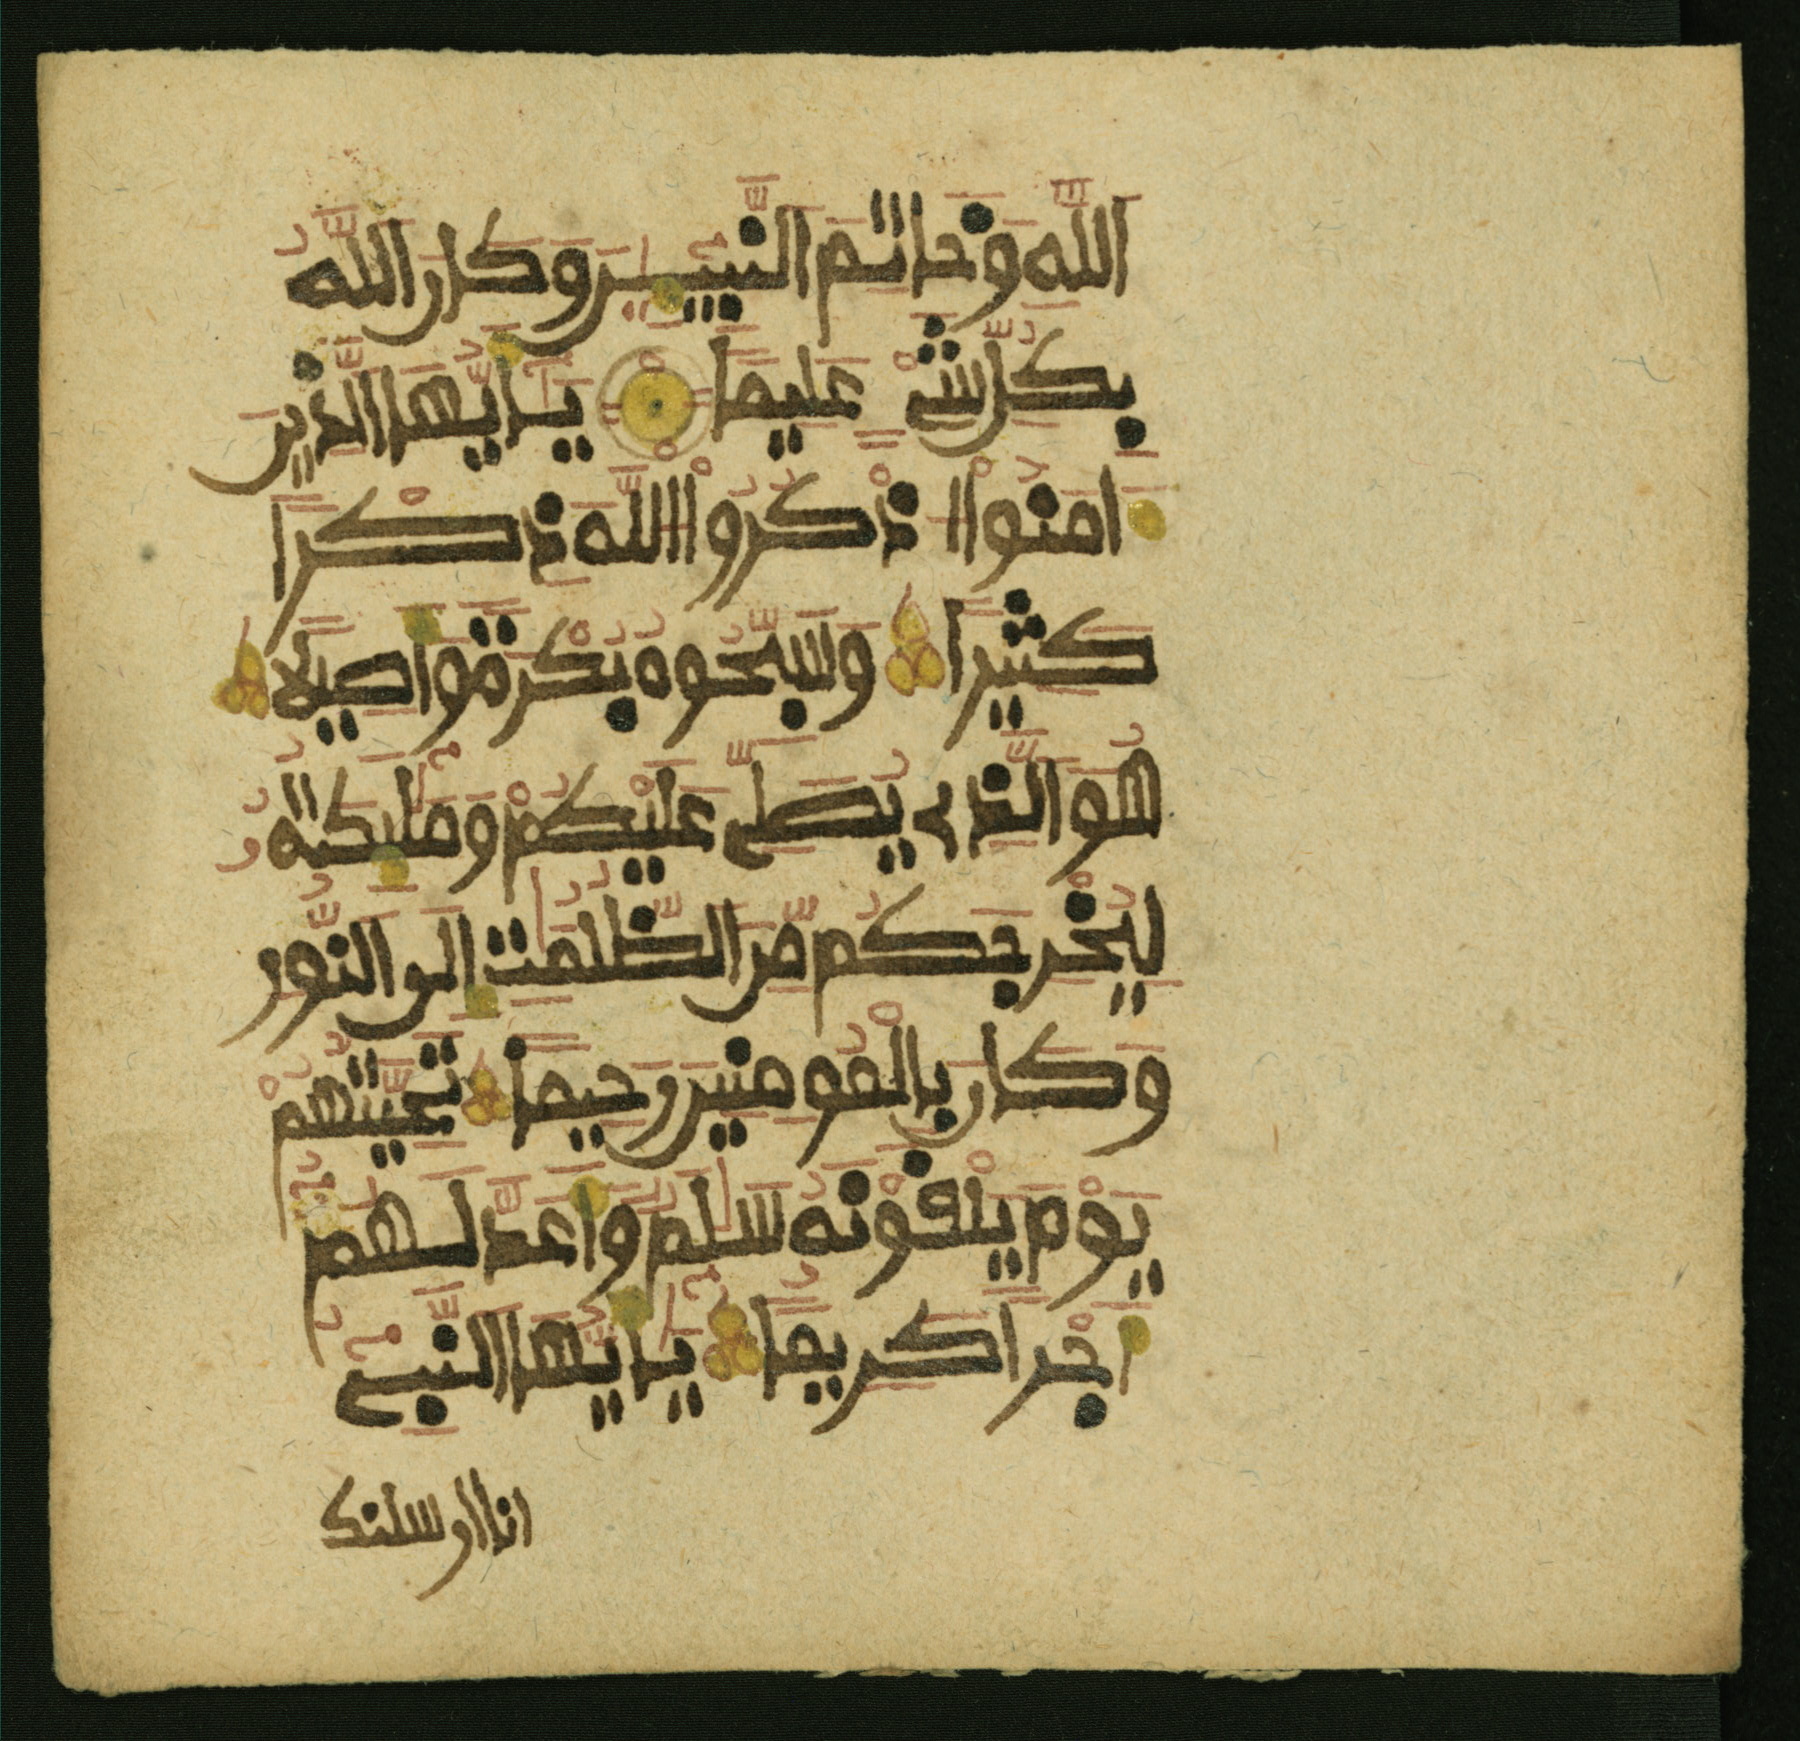 اللَّهِ وَخَاتِمَ النَّبِيِينَ وَكَانَ اللَّهُ
بِكُلِّ شَيْءٍ عَلِيمًا يَاأَيُّهَا الَّذِينَ
ءَامَنُوا اذْكُرُوا اللَّهَ ذِكْرًا
كَثِيرًا وَسَبِّحُوهُ بُكْرَةً وَأَصِيلًا
هُوَ الَّذِي يُصَلِّي عَلَيْكُمْ وَمَلَٰئِكَتُهُ
لِيُخْرِجَكُم مِّنَ الظُّلُمَٰتِ إِلَى النُّورِ
وَكَانَ بِالْمُومِنِينَ رَحِيمًا تَحِيَّتُهُمْ
يَوْمَ يَلْقَوْنَهُ سَلَٰمٌ وَأَعَدَّ لَهُمُ
أَجْرًا كَرِيمًا يَاأَيُّهَا النَّبِيءُ
انا ارسلنك